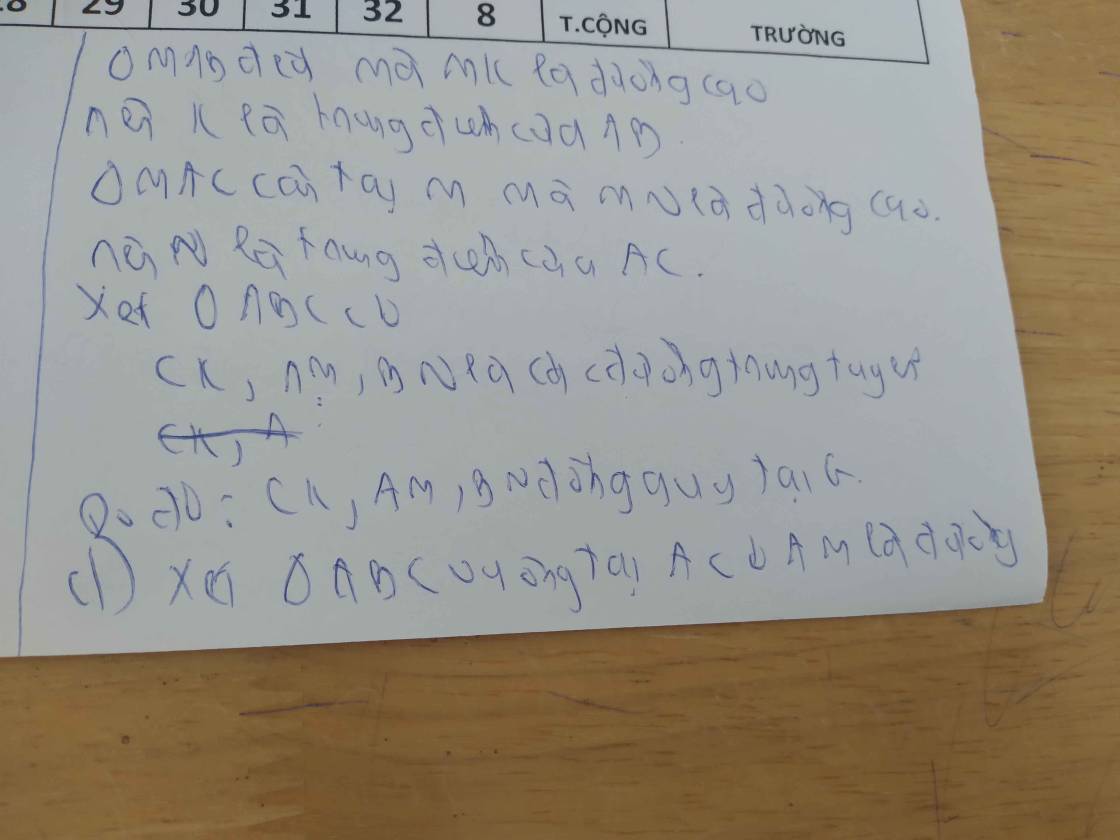 28 29 30 31 32 8 T.CỘNG TRƯỜNG
Δ MAB đều mà MK là đường cao
nên K là trung điểm của AB.
Δ MAC cân tại M mà MN là đường cao.
nên N là trung điểm của AC.
Xét Δ ABC có
CK, AM, BN là các đường trung tuyến
CK, A
Do đó: CK, AM, BN đồng quy tại G.
d) Xét Δ ABC vuông tại A có AM là đường